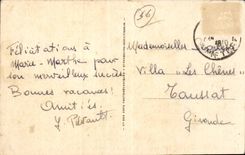 (56)
Félicitations à
Marie-Marthe pour
son merveilleux succès.
Bonnes vacances!
Amitiés.
Mademoiselles
Villa "Les Chênes"
Taussat
Gironde